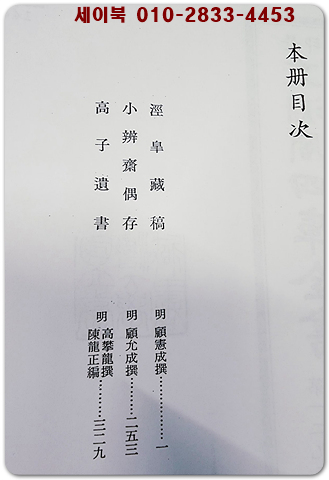 세이북 010-2833-4453
本册目次
涇皐藏稿 明 顧憲成撰…………一
小辨齋偶存 明 顧允成撰…………二五三
高子遺書 明 高攀龍撰
陳龍正編…………三二九